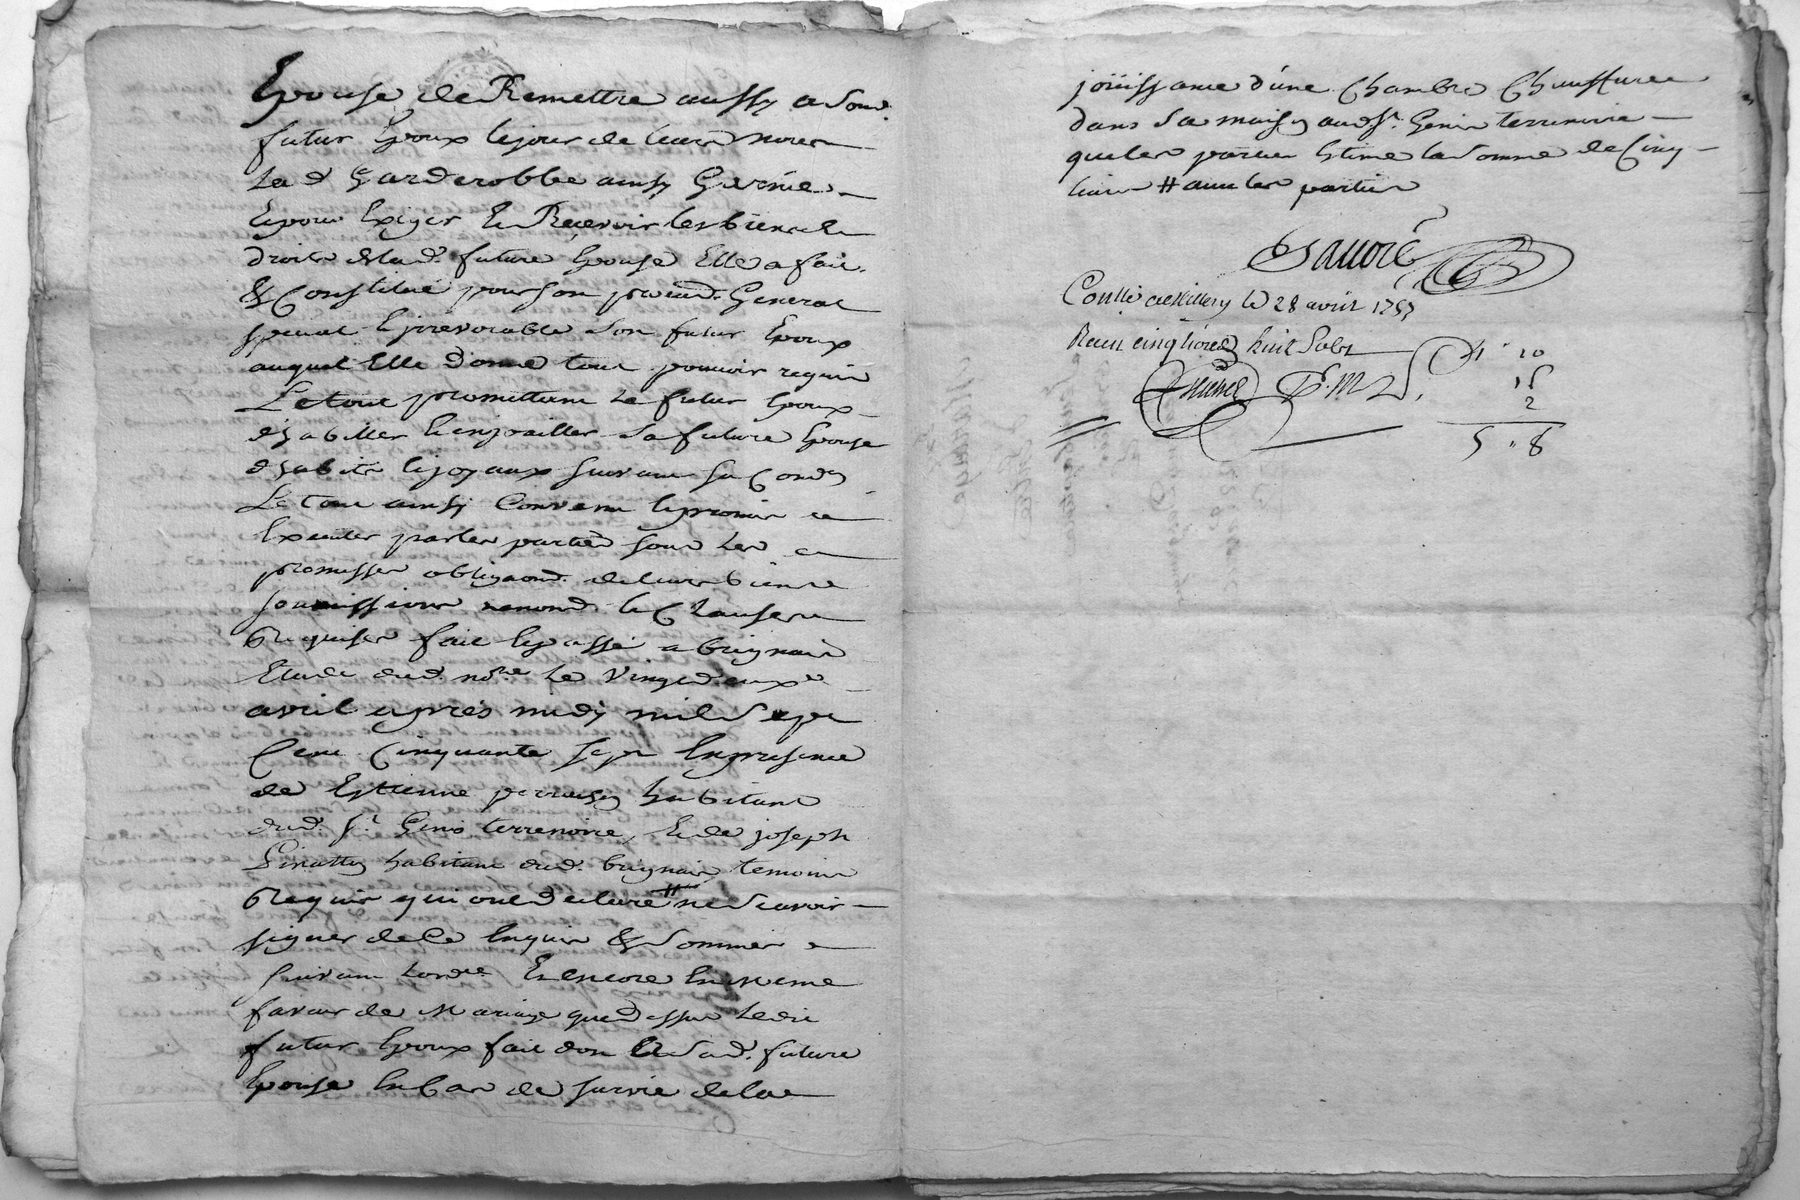 Epouse de Remettre aussy a Sond.
futur Epoux le jour de leurs noces
La d garderobbe ainsy Garnie
Et pour Exiger Et Recevoir les biens et
droits de lad. future Epouse Elle a fait
& Constitué pour son procur. General
special Et irrevocable Son futur Epoux
auquel Elle donne tout pouvoir requis
Le tout promettant Le futur Epoux
d'habiller Et enjoailler Sa future Epouse
d'habits Et joyaux suivant sa Condon
Le tout ainsy Convenu Et promis
Executer par les parties sous Les
promesses obligaons. de leurs biens
soumissions renonons. Et Clauses
Requises fait Et passé a brignais
Etude dud. nore. Le Vingt deuxe
avril apres midy mil Sept
Cent Cinquante sept En presence
de Estienne habitant
dud. St. Genis terrenoire, Et de joseph
habitant dud. brignais temoins
Requis qui ont declaré # ne Scavoir
signer de Ce Enquis & Sommés
suivant Lordce Et encore En meme
faveur de Mariage que dessus Ledit
futur Epoux fait don a Sad. future
Epouse En Cas de survie de la
joüissance d'une Chambre Chauffurée
dans Sa maison aud St. Genis terrenoire
que les parties Estime la Somme de Cinq
livres # avec les parties
Contlé a le 28 avril 1757
Receu cinq livres huit Sols
4 " 10
15
2
5 " 8